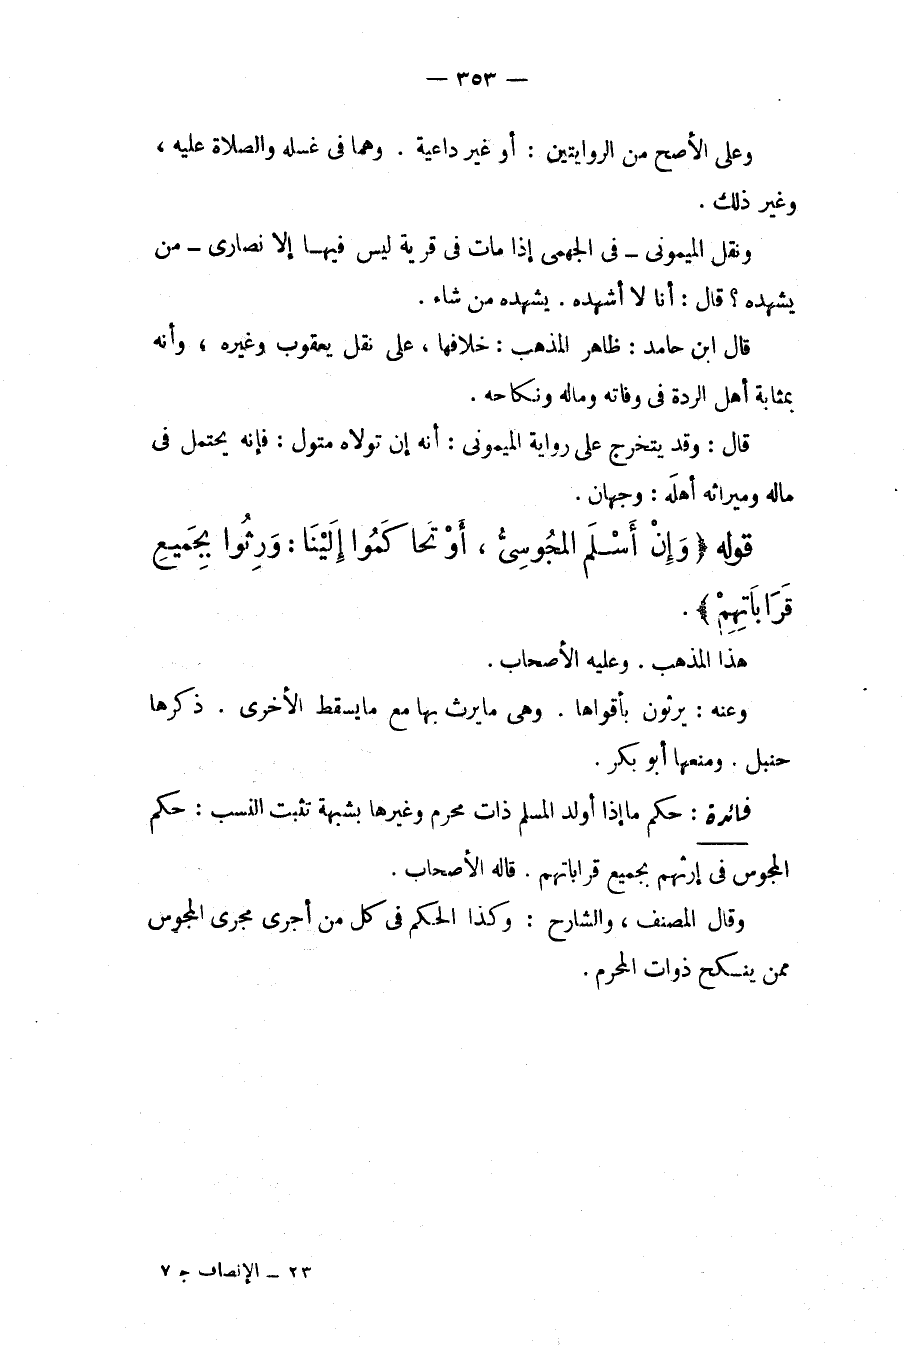 — ٣٥٣ —
وعلى الأصح من الروايتين : أو غير داعية . وهما فى غسله والصلاة عليه ،
وغير ذلك .
ونقل الميمونى – فى الجهمى إذا مات فى قرية ليس فيها إلا نصارى – من
يشهده ؟ قال : أنا لا أشهده . يشهده من شاء .
قال ابن حامد : ظاهر المذهب : خلافها ، على نقل يعقوب وغيره ، وأنه
بمثابة أهل الردة فى وفاته وماله ونكاحه .
قال : وقد يتخرج على رواية الميمونى : أنه إن تولاه متول : فإنه يحتمل فى
ماله وميراثه أهلَه : وجهان .
قوله ﴿ وَإِنْ أَسْلَمَ المجُوسِىُّ ، أَوْ تَحَاكَمُوا إِلَيْنَا : وَرِثُوا بِجَمِيعِ
قَرَابَاتِهِمْ ﴾ .
هذا المذهب . وعليه الأصحاب .
وعنه : يرثون بأقواها . وهى مايرث بها مع مايسقط الأخرى . ذكرها
حنبل . ومنعها أبو بكر .
فائدة : حكم ماإذا أولد المسلم ذات محرم وغيرها بشبهة تثبت النسب : حكم
المجوس فى إرثهم بجميع قراباتهم . قاله الأصحاب .
وقال المصنف ، والشارح : وكذا الحكم فى كل من أجرى مجرى المجوس
ممن ينكح ذوات المحرم .
٢٣ – الإنصاف ج ٧